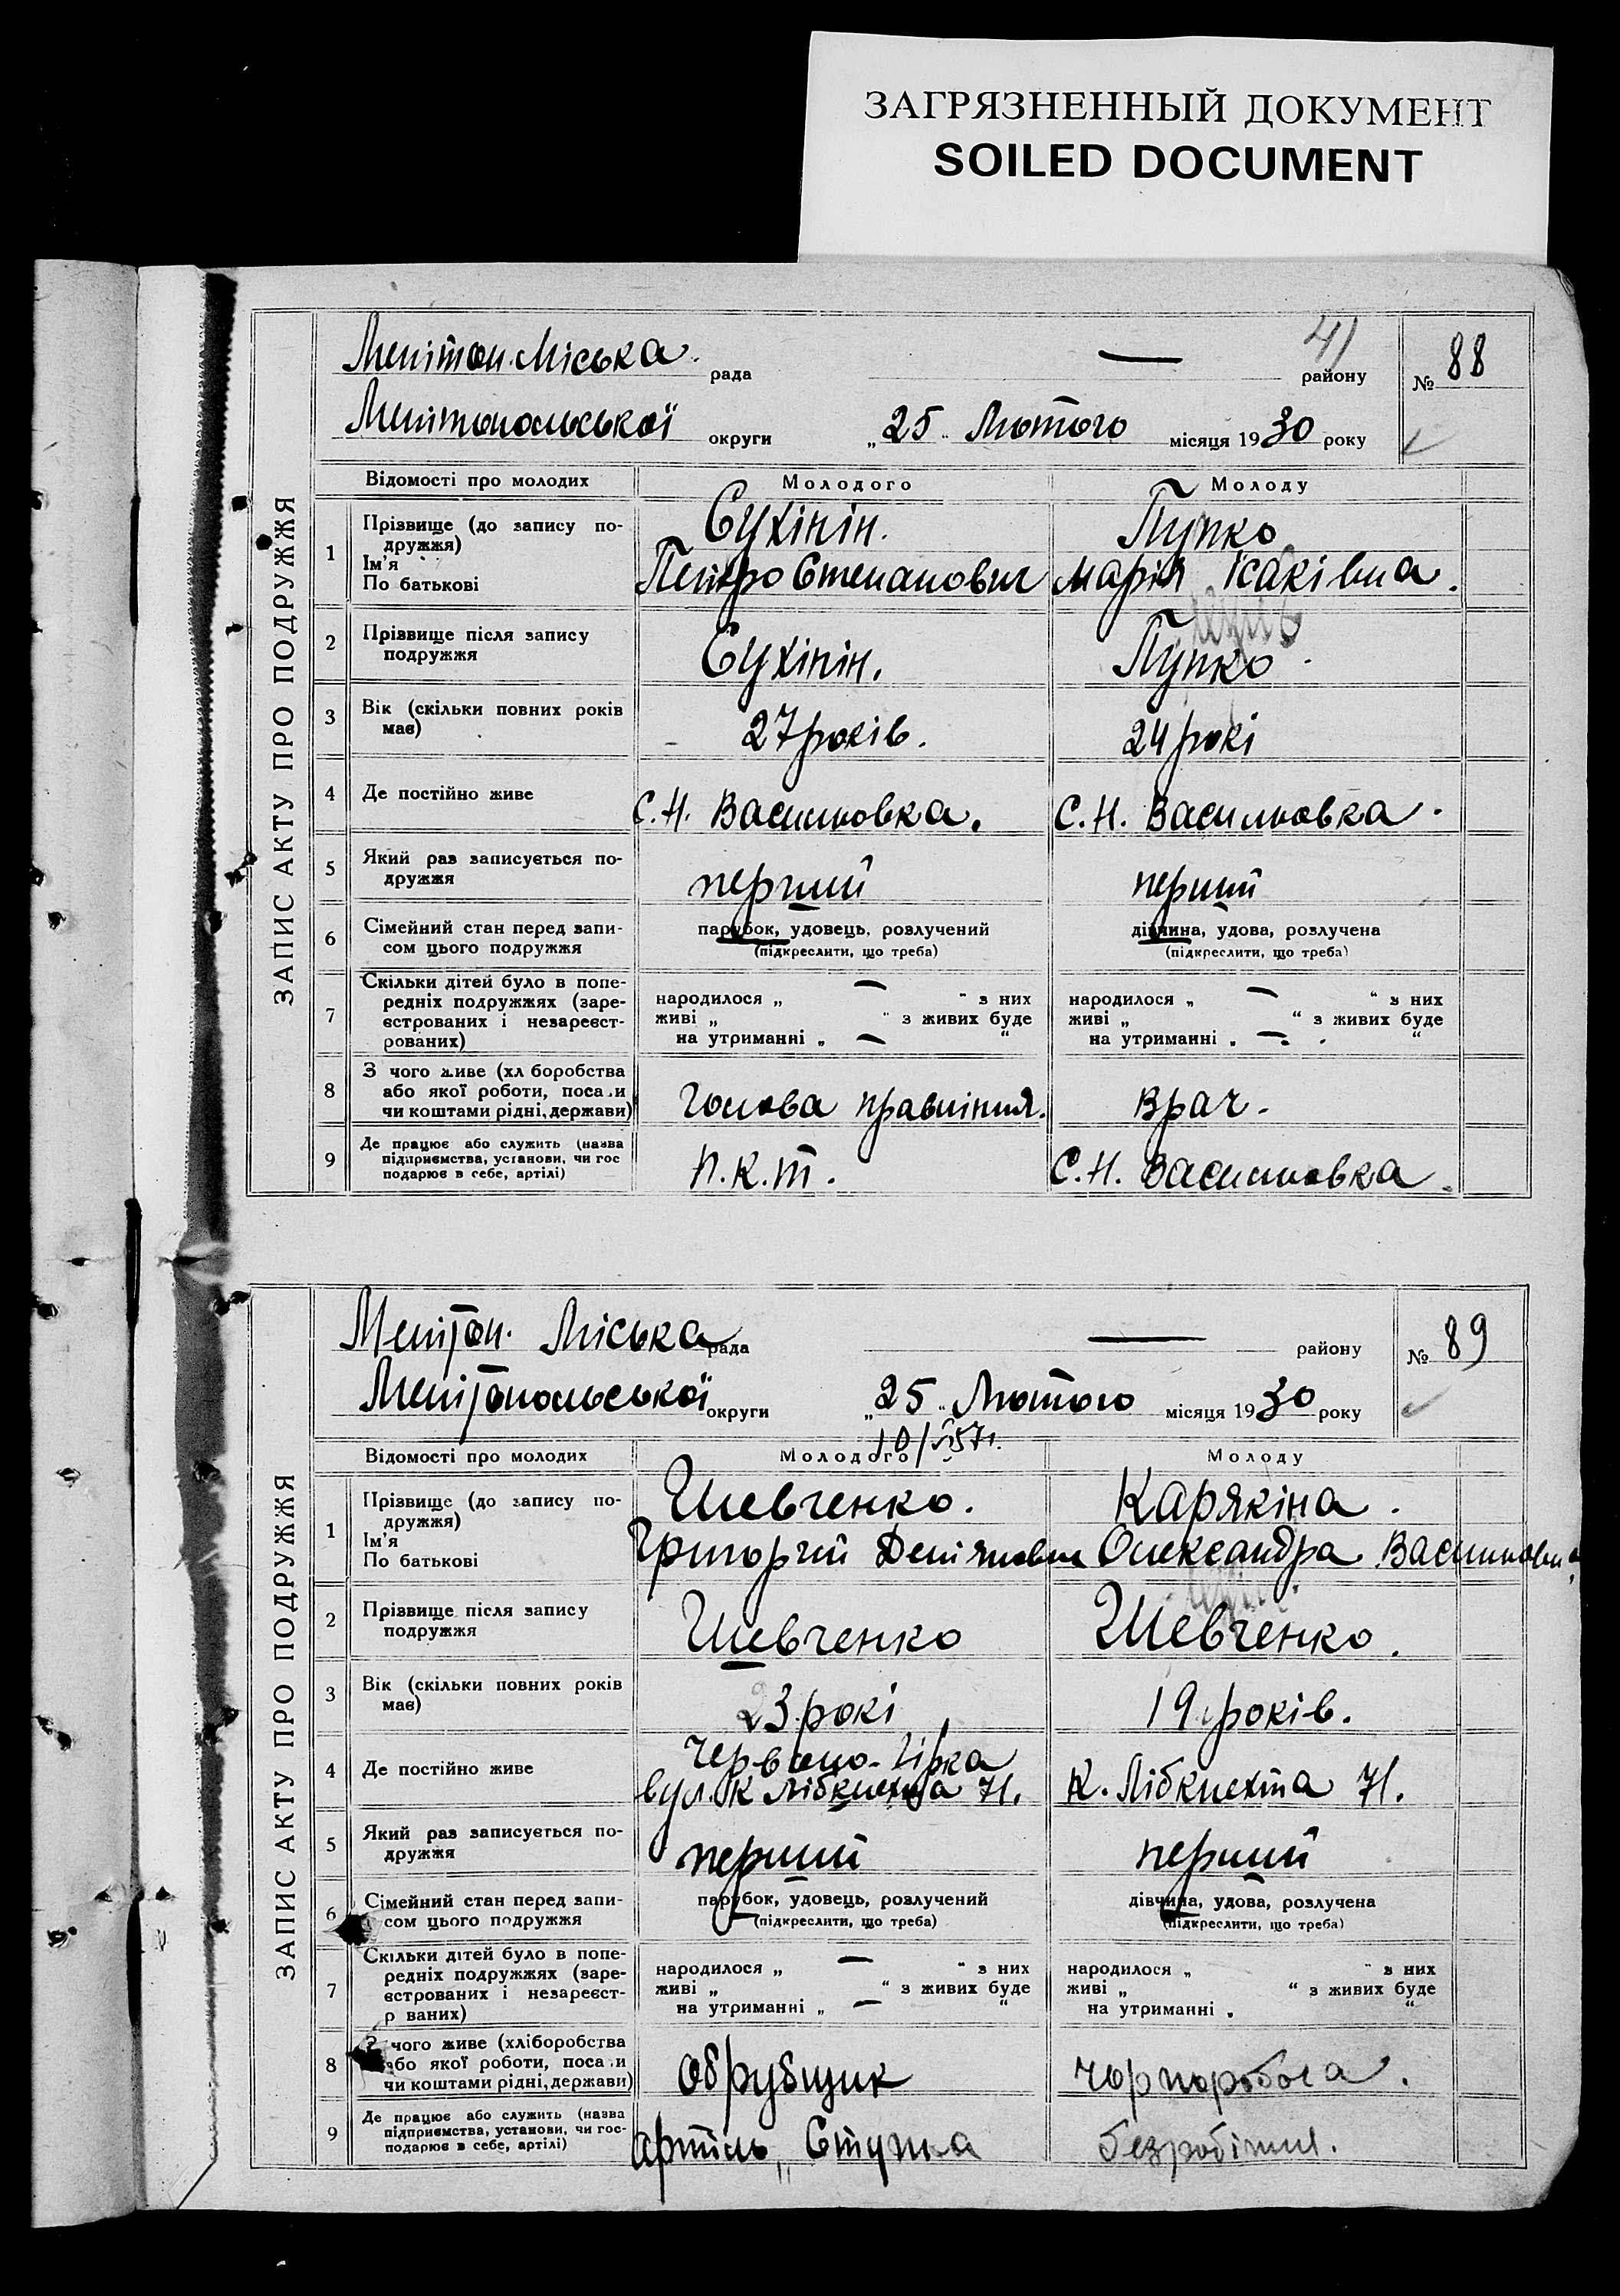 ЗАГРЯЗНЕННЫЙ ДОКУМЕНТ
SOILED DOCUMENT
ЗАПИС АКТУ ПРО ПОДРУЖЖЯ
Мелітоп. Міська рада — району 41
№ 88
Мелітопольської округи „25" Лютого місяця 1930 року
Відомості про молодих Молодого Молоду
1 Прізвище (до запису по-
дружжя)
Ім'я
По батькові
Сухінін. Пупко
Петро Степанович Марія Ісаківна.
2 Прізвище після запису
подружжя
Сухінін. Пупко.
3 Вік (скільки повних років
має)
27 років. 24 рокі
4 Де постійно живе С.Н. Василовка. С.Н. Василовка.
5 Який раз записується по-
дружжя
перший перший
6 Сімейний стан перед запи-
сом цього подружжя
парубок, удовець, розлучений дівчина, удова, розлучена
(підкреслити, що треба) (підкреслити, що треба)
7 Скільки дітей було в попе-
редніх подружжях (заре-
єстрованих і незареєст-
рованих)
народилося „ — " з них народилося „ — " з них
живі „ " з живих буде живі „ " з живих буде
на утриманні „ — " на утриманні „ — "
8 З чого живе (хл боробства
або якої роботи, поса и
чи коштами рідні, держави)
голова правління. врач.
9 Де працює або служить (назва
підприємства, установи, чи гос
подарює в себе, артілі)
П.К.Т. С.Н. Василовка.
ЗАПИС АКТУ ПРО ПОДРУЖЖЯ
Мелітоп. Міська рада — району
№ 89
Мелітопольської округи „25" Лютого місяця 1930 року
Відомості про молодих Молодого Молоду
1 Прізвище (до запису по-
дружжя)
Ім'я
По батькові
Шевченко. Карякіна.
Григорій Дем'янович Олександра Василовна
2 Прізвище після запису
подружжя
Шевченко Шевченко.
3 Вік (скільки повних років
має)
23 рокі 19 років.
4 Де постійно живе
Червоно-Гірка
вул. К Лібкнехта 71. К. Лібкнехта 71.
5 Який раз записується по-
дружжя
перший перший
6 Сімейний стан перед запи-
сом цього подружжя
парубок, удовець, розлучений дівчина, удова, розлучена
(підкреслити, що треба) (підкреслити, що треба)
7 Скільки дітей було в попе-
редніх подружжях (заре-
єстрованих і незареєст-
р ваних)
народилося „ — " з них народилося „ " з них
живі „ " з живих буде живі „ " з живих буде
на утриманні „ — " на утриманні „ "
8 чого живе (хліборобства
або якої роботи, поса и
чи коштами рідні, держави)
обрубщик чорнороб
9 Де працює або служить (назва
підприємства, установи, чи гос-
подарює в себе, артілі)
артіль безробітня.